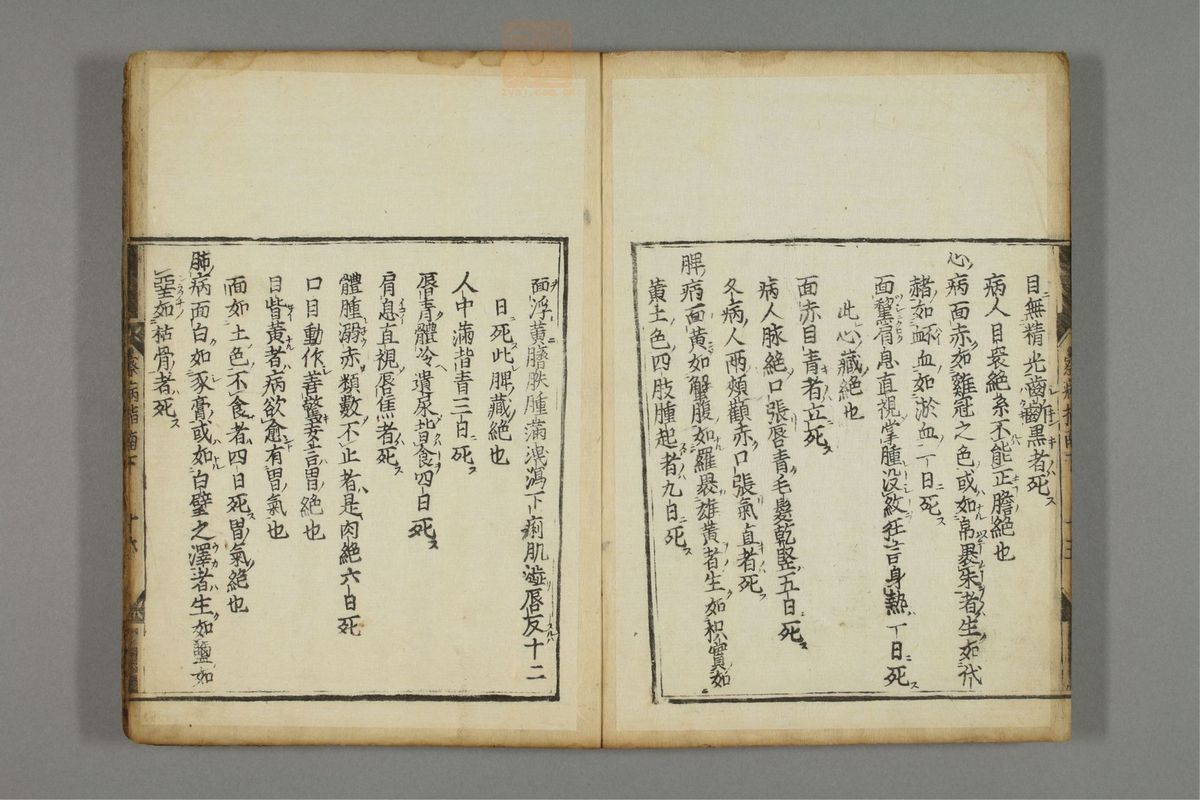 目無精光齒齗黒者死
病人目喪絶系不能正膽絶也
心病面赤如雞冠之色或如帛裹朱者生如代
赭如衃血如淤血一日死
面黧肩息直視掌腫没紋狂言身熱一日死
此心藏絶也
面赤目青者立死
病人脉絶口張唇青毛髮乾竪五日死
冬病人兩頰顴赤口張氣直者死
脾病面黄如蟹腹如羅裹雄黄者生如枳實如
黄土色四肢腫起者九日死
面浮黄臍趺腫滿洩瀉下痢肌澁唇反十二
日死此脾藏絶也
人中滿背青三日死
唇青體冷遺尿背食四日死
肩息直視唇焦者死
體腫溺赤類數不止者是肉絶六日死
口目動作善驚妄言胃絶也
目眥黄者病欲愈有胃氣也
面如土色不食者四日死胃氣絶也
肺病面白如豕膏或如白璧之澤者生如鹽如
堊如枯骨者死
察病指南下